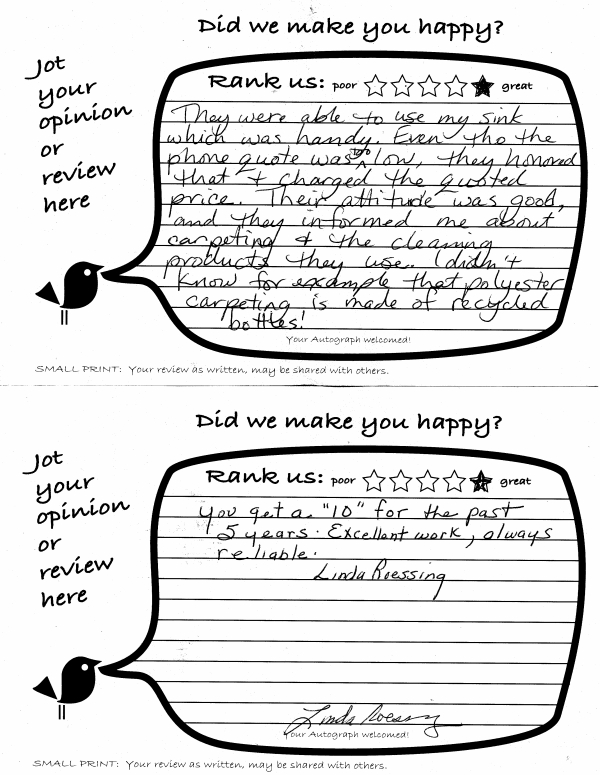 Did we make you happy?
Jot
your
opinion
or
review
here
Rank us: poor great
They were able to use my sink
which was handy. Even tho the
phone quote was too low, they honored
that & charged the quoted
price. Their attitude was good,
and they informed me about
carpeting & the cleaning
products they use. I didn't
know for example that polyester
carpeting is made of recycled
bottles!
Your Autograph welcomed!
SMALL PRINT: Your review as written, may be shared with others.
Did we make you happy?
Jot
your
opinion
or
review
here
Rank us: poor great
You get a "10" for the past
5 years. Excellent work, always
reliable.
Linda Roessing
Linda Roessing
Your Autograph welcomed!
SMALL PRINT: Your review as written, may be shared with others.